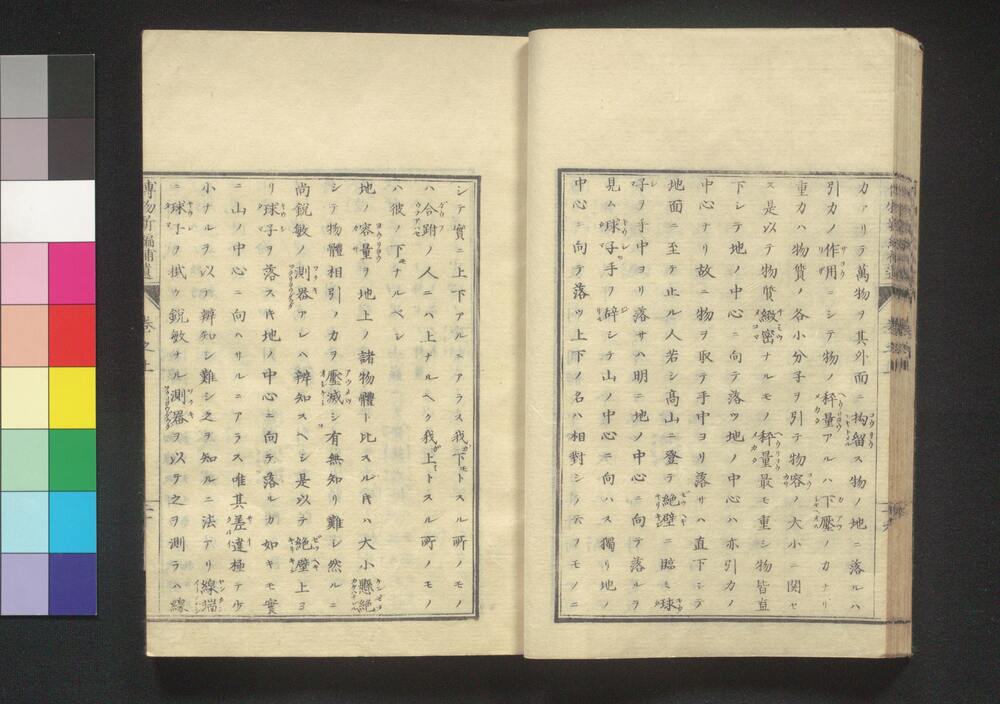 力アリテ萬物ヲ其外面ニ拘留ス物ノ地ニ落ルハ
引力ノ作用ニシテ物ノ秤量アルハ下壓ノ力ナリ
重力ハ物質ノ各小分子ヲ引テ物容ノ大小ニ関セ
ス是以テ物質緻密ナルモノ秤量最モ重シ物皆直
下シテ地ノ中心ニ向テ落ツ地ノ中心ハ亦引力ノ
中心ナリ故ニ物ヲ取テ手中ヨリ落サハ直下シテ
地面ニ至テ止ル人若シ高山ニ登テ絶壁ニ臨ミ球
子ヲ手中ヨリ落サハ明ニ地ノ中心ニ向テ落ルヲ
見ム球子手ヲ辞シテ山ノ中心ニ向ハス獨リ地ノ
中心ニ向テ落ツ上下ノ名ハ相對シテ云フモノニ
シテ實ニ上下アルニアラス我下トスル所ノモノ
ハ合跗ノ人ニハ上ナルヘク我上トスル所ノモノ
ハ彼ノ下ナルベシ
地ノ容量ヲ地上ノ諸物體ト比スル𪜈ハ大小懸絶
シテ物體相引ノ力ヲ壓滅シ有無知リ難レ然ルニ
尚鋭敏ノ測器アレハ辨知スヘシ是以テ絶壁上ヨ
リ球子ヲ落ス𪜈地ノ中心ニ向テ落ルカ如キモ實
ニ山ノ中心ニ向ハサルニアラス唯其差違極テ少
小ナルヲ以テ辨知シ難シ之ヲ知ルニ法アリ線端
ニ球子ヲ拭ヶ鋭敏ナル測器ヲ以テ之ヲ測ラハ線
博物新編補遺 卷之上